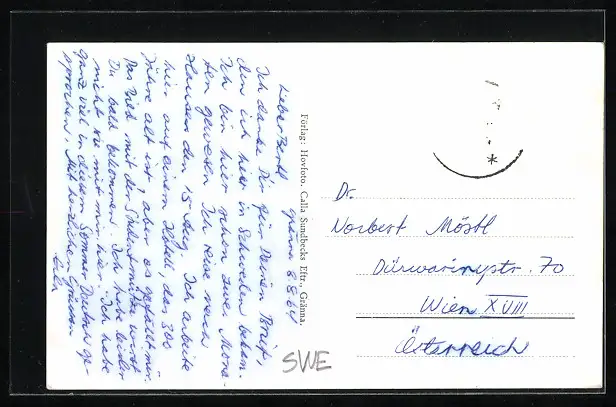 Gränna 8.8.64
Lieber Bertl
Ich danke Dir für Deinen Brief,
den ich hier in Schweden bekam.
Ich bin hier schon zwei Mona-
ten gewesen. Ich reise nach
Hausen den 15 Aug. Ich arbeite
hier auf einem Hotell, das 300
Jahre alt ist, aber es gefällt mir.
Das Bild mit der Studentmütze wirst
Du bald bekommen. Ich habe leider
nicht sie mit mir hier. Ich habe
ganz viel in diesem Sommer Deutsch ge-
sprochen. Mit herzlichen Grüssen
Förlag: Hovfoto. Calla Sundbecks Eftr., Gränna.
SWE
Dr.
Norbert Möstl
Dürwaringstr. 70
Wien XVIII
Österreich